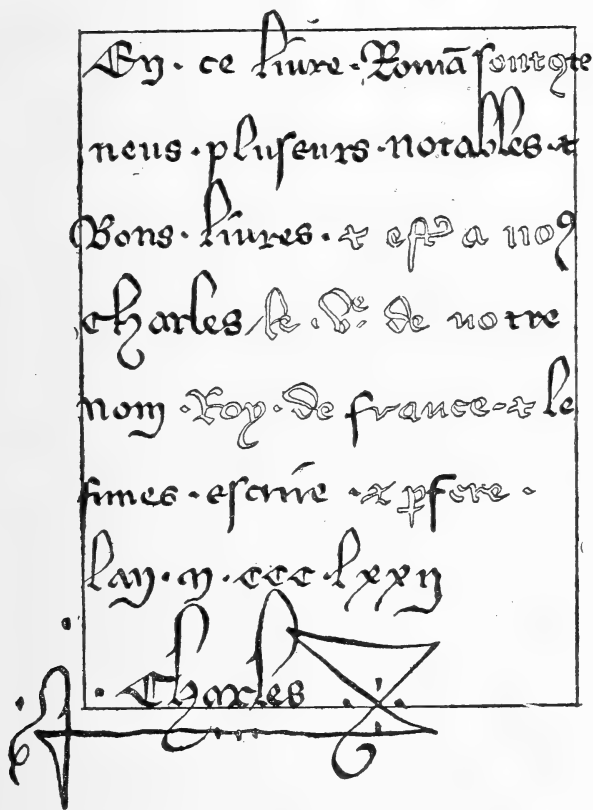 En · ce livre · Romā sont 9te
neus · pluseurs · notables · ⁊
Bons · livres · ⁊ est a no9
Charles le · Ve · de notre
nom · Roy · de france · ⁊ le
fimes · escrire · ⁊ pfere ·
lan · m · ccc · lxxij
· Charles